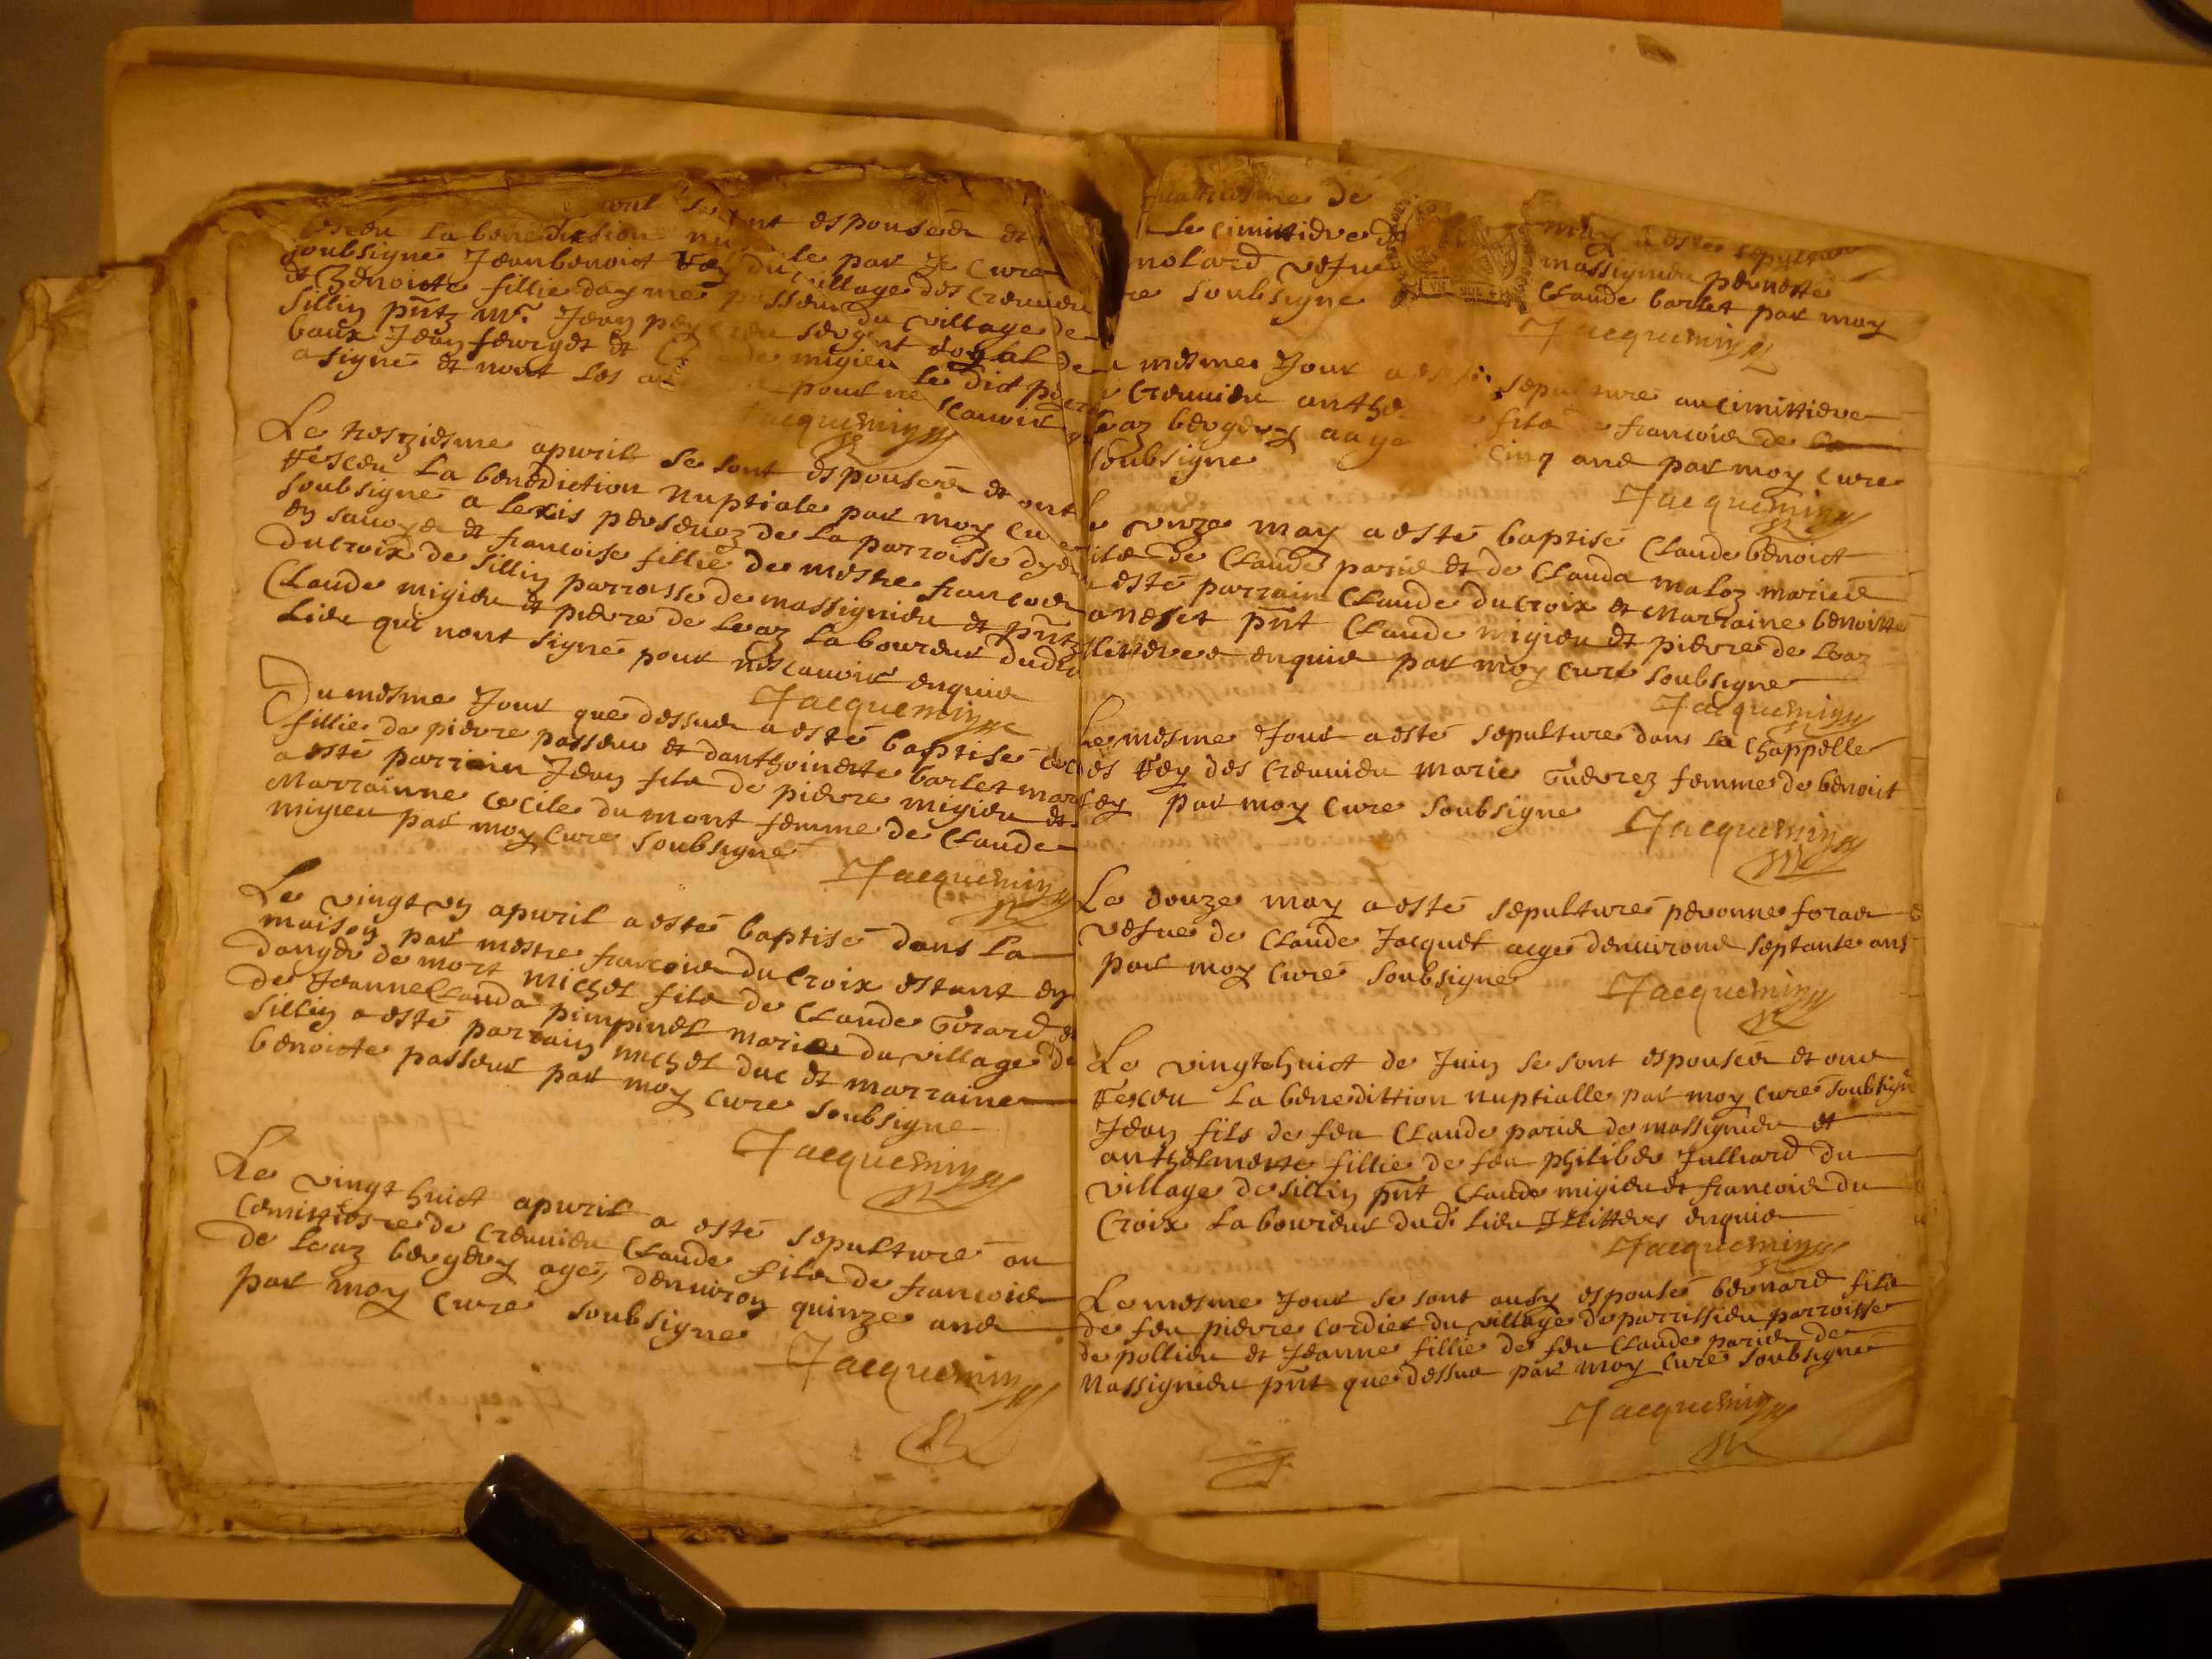 apvril se sont espousés et
resceu la benediction nuptiale par Je cure
soubsigne Jean benoict Rey du village des Creuvieu
et Benoicte fillie daymé passeur du village de
Sillin pnts Mr. Jean sergent royal de
baux Jean feurget et Claude migieu le dict
a signé et nont les pour ne scauoir
Jacquemin
Le trezziesme apvril se sont espousés et ont
resceu La benediction nuptiale par moy cure
soubsigné alexis persenoz de la parroisse
en sauoye et francoise fillie de mestre francois
ducroix de sillin parroisse de massignieu et pnts
Claude migieu et pierre de Leaz Laboureur dudit
Lieu qui nont signé pour ne scauoir enquis
Jacquemin
Du mesme Jour que dessus a esté baptisé
fillie de pierre passeur et danthoinette barlet
a esté parrain Jean fils de pierre migieu et
Marrainne Cecile dumont femme de Claude
migieu par moy Cure soubsigné
Jacquemin
Le vingt un apvril a esté baptisé dans La
maison par mestre francois du Croix estant en
danger de mort michel fils de Claude Girard et
de Jeanne Clauda pimpinel mariés du village de
Sillin a esté parrain michel duc et marraine
benoicte passeur par moy cure soubsigne
Jacquemin
Le vingt huict apvril a esté sepulturé au
Cemittiere de Creuvieu Claude fils de francois
de Leaz bergery agé denviron quinze ans
par moy cure soubsigne
Jacquemin
quatriesme de may a esté sepulturé
le cimittiere de massignieu pernette
molard vefue Claude barlet par moy
cure soubsigne
Jacquemin
mesme Jour a esté sepulturé au cimittiere
Creuvieu anthe fils francois de
Leaz bergery aagé cinq ans par moy cure
soubsigne
Jacquemin
Le unze may a esté baptisé Claude benoict
fils de Claude paris et de Clauda maloz mariés
a esté parrain Claude ducroix et Marraine benoitte
pnt Claude migieu et pierre de Leaz
illitterés enquis par moy curé soubsigne
Jacquemin
Le mesme Jour a esté sepulturé dans La Chappelle
des Rey des Creuvieu marie Guerrez femme de benoit
Rey par moy cure soubsigne
Jacquemin
Le douze may a esté sepulturé peronne foras
vefue de Claude Jacquet aage denuirons septante ans
par moy Curé soubsigne
Jacquemin
Le vingtehuict de Juin se sont espousés et ons
resceu La benedittion nuptialle par moy cure soubsigné
Jean fils de feu Claude paris de massignieu et
anthelmette fillie de feu philiber Julliard du
village de sillin pnt Claude migieu et francois du
Croix Laboureur dudt. Lieu Illitteres enquis
Jacquemin
Le mesme Jour se sont ausy espousé bernard fils
de feu pierre cordier du village de parrissieu parroisse
de pollieu et Jeanne fillie de feu Claude paris de
Massignieu pnt que dessus par moy Cure soubsigne
Jacquemin